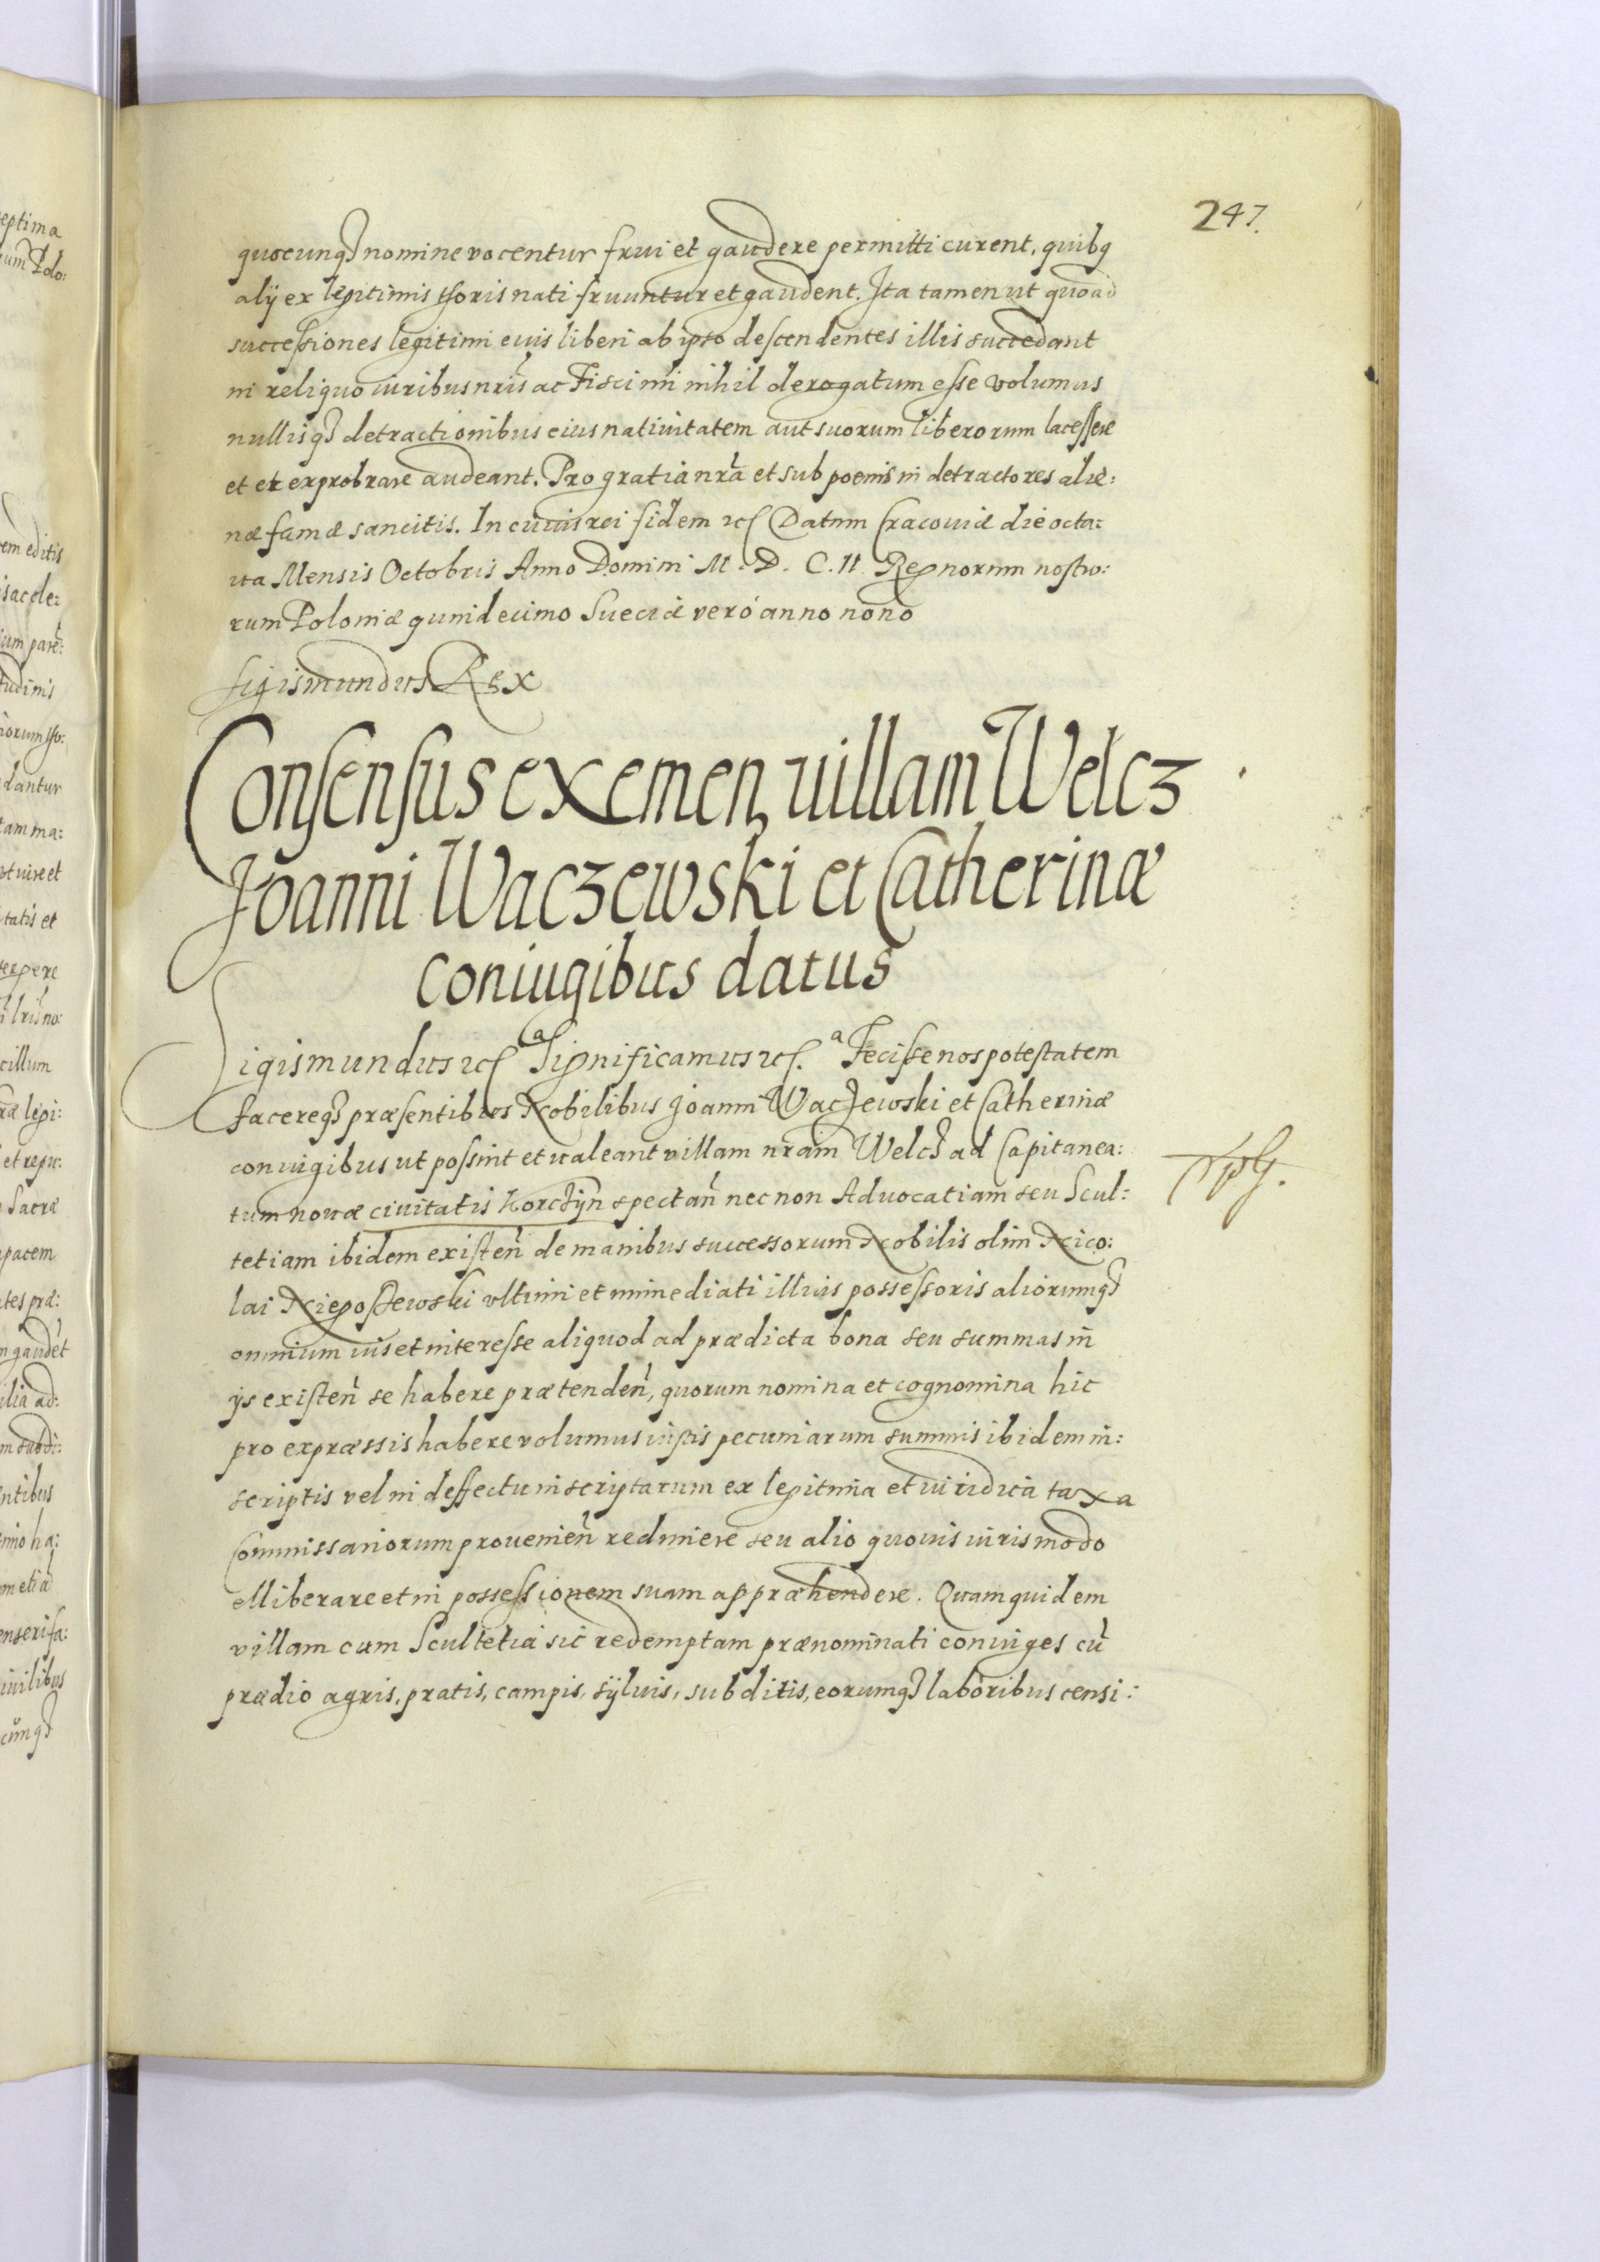 247.
quocunq3 nomine vocentur frui et gaudere permitti curent, quibq
alij ex legitimis thoris nati fruuntur et gaudent. Ita tamen ut quoad
successiones legitimi euis liberi ab ipso descendentes illis succedant
in reliquo iuribus nris ac Fisci nri nihil derogatum esse volumus
nullisq3 detractionibus eius natiuitatem aut suorum liberorum lacessere
et ei exprobrare audeant. Pro gratia nra et sub poenis in detractores alie:
næ famæ sancitis. In cuius rei fidem etc Datum Cracouiæ die octa:
ua Mensis Octobris Anno Domini M. D. C. II. Regnorum nostro:
rum Poloniæ quindecimo Sueciæ vero anno nono
Sigismundus Rex
Consensus exemen, uillam Welcz
Joanni Waczewski et Catherinæ
coniugibus datus
Sigismundus etc Significamus etc. Fecisse nos potestatem
facereq3 præsentibus Nobilibus Joanni Waczewski et Catherinæ
coniugibus ut possint et ualeant villam nram Welcz ad Capitanea:
tum nouæ ciuitatis Korczÿn spectan nec non Aduocatiam seu Scul:
tetiam ibidem existen de manibus successorum Nobilis olim Nico:
lai Niepostewski ultimi et immediati illius possessoris aliorumq3
omnium ius et interesse aliquod ad prædicta bona seu summas in
ijs existen se habere prætenden, quorum nomina et cognomina hic
pro expræssis habere volumus iustis pecuniarum summis ibidem in:
scriptis vel in deffectu inscriptarum ex legitima et iuridica taxa
Commissariorum prouenien redimere seu alio quouis iuris modo
elliberare et in possessionem suam appræhendere. Quam quidem
villam cum Scultetia sic redemptam prænominati coniuges cu
prædio agris, pratis, campis, sÿluis, subditis, eorumq3 laboribus censi: